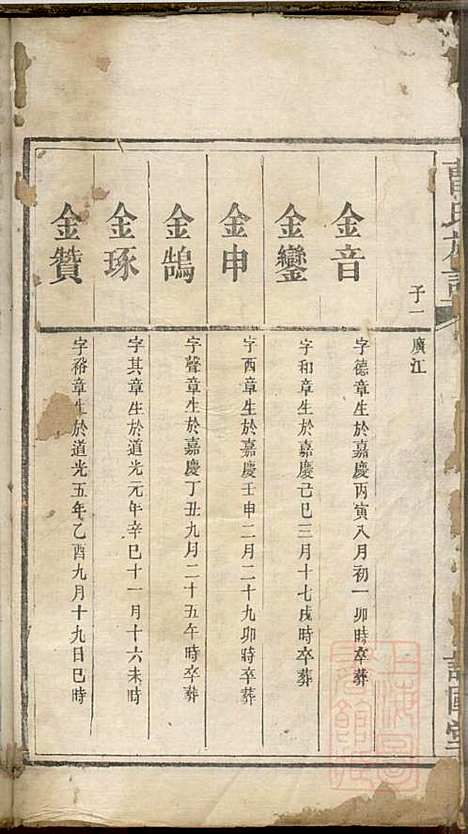 曹氏族譜
子一
廣江
金音
字德章生於嘉慶丙寅八月初一卯時卒葬
金鑾
字和章生於嘉慶己巳三月十七戌時卒葬
金申
字酉章生於嘉慶壬申二月二十九卯時卒葬
金鵠
字聲章生於嘉慶丁丑九月二十五午時卒葬
金琢
字其章生於道光元年辛巳十一月十六未時
金贊
字裕章生於道光五年乙酉九月十九日巳時
上海圖
書館藏